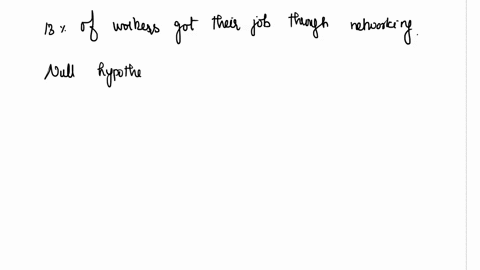 13 % of workers got their job through networking.
Null hypothe